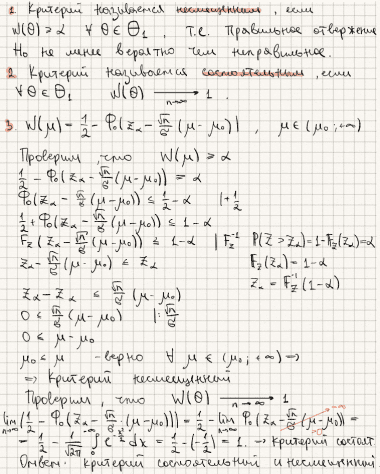 1. Критерий называется несмещённым, если
W(θ) ≥ α ∀ θ ∈ Θ₁, т.е. Правильное отвержение
H₀ не менее вероятно чем неправильное.
2. Критерий называется состоятельным, если
∀ θ ∈ Θ₁ W(θ) ⟶ 1. n→∞
3. W(μ) = 1/2 - Φ₀(z_α - √n/σ (μ - μ₀)), μ ∈ (μ₀; +∞)
Проверим, что W(μ) ≥ α
1/2 - Φ₀(z_α - √n/σ (μ - μ₀)) ≥ α
Φ₀(z_α - √n/σ (μ - μ₀)) ≤ 1/2 - α | + 1/2
1/2 + Φ₀(z_α - √n/σ (μ - μ₀)) ≤ 1 - α
F_Z(z_α - √n/σ (μ - μ₀)) ≤ 1 - α | F_Z⁻¹ P(Z > z_α) = 1 - F_Z(z_α) = α
z_α - √n/σ (μ - μ₀) ≤ z_α F_Z(z_α) = 1 - α
z_α - z_α ≤ √n/σ (μ - μ₀) z_α = F_Z⁻¹(1 - α)
0 ≤ √n/σ (μ - μ₀) | : √n/σ
0 ≤ μ - μ₀
μ₀ ≤ μ - верно ∀ μ ∈ (μ₀; +∞) ⇒
⇒ Критерий несмещенный
Проверим, что W(θ) ⟶ 1 n→∞
lim n→∞ (1/2 - Φ₀(z_α - √n/σ (μ - μ₀))) = 1/2 - lim n→∞ Φ₀(z_α - √n/σ (μ - μ₀)) = -∞ >0
= 1/2 - 1/√2π ∫ e^(-x²/2) dx = 1/2 - (-1/2) = 1. ⇒ критерий состоят
Ответ: критерий состоятельный и несмещенный